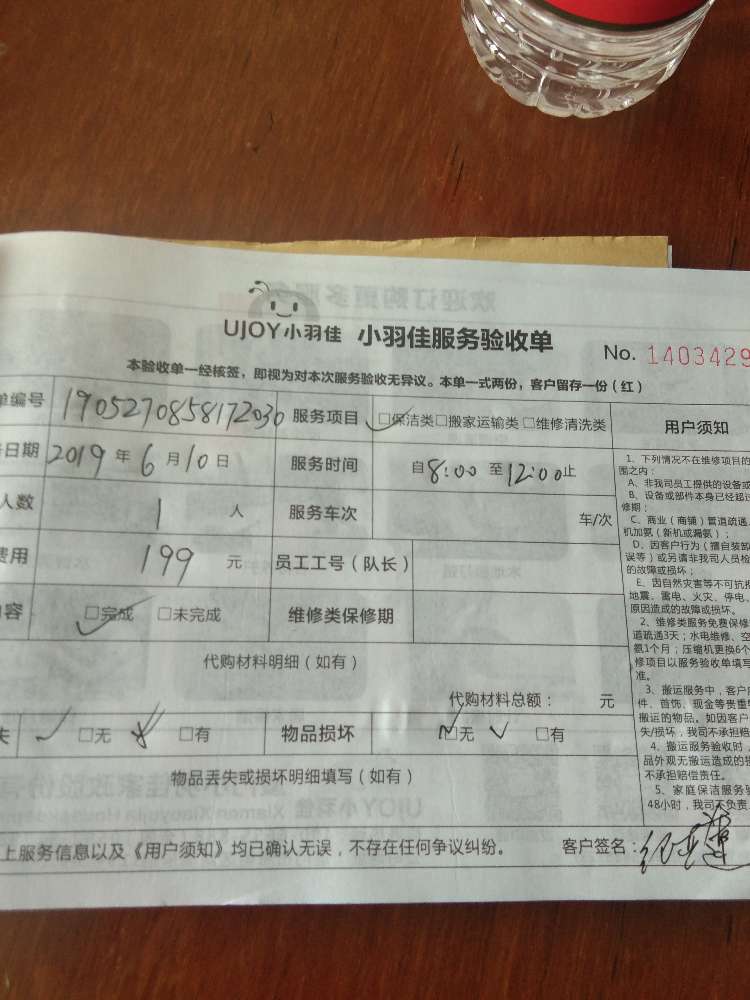 UJOY小羽佳 小羽佳服务验收单 No. 1403429
本验收单一经核签，即视为对本次服务验收无异议。本单一式两份，客户留存一份（红）
单编号 1905270858172030 服务项目 □保洁类□搬家运输类□维修清洗类
日期 2019 年 6 月 10 日 服务时间 自 8:00 至 12:00 止
人数 1 人 服务车次 车/次
费用 199 元 员工工号（队长）
内容 □完成 □未完成 维修类保修期
代购材料明细（如有）
代购材料总额： 元
失 □无 □有 物品损坏 □无 □有
物品丢失或损坏明细填写（如有）
上服务信息以及《用户须知》均已确认无误，不存在任何争议纠纷。 客户签名：
用户须知
1、下列情况不在维修项目的
围之内：
A、非我司员工提供的设备或
B、设备或部件本身已经超过
修期；
C、商业（商铺）管道疏通
机加氨（新机或漏氨）；
D、因客户行为（擅自装卸
误等）或另请非我司人员检
的故障或损坏；
E、因自然灾害等不可抗拒
地震、雷电、火灾、停电、
原因造成的故障或损坏。
2、维修类服务免费保修
道疏通3天；水电维修、空
氨1个月；压缩机更换6个
修项目以服务验收单填写
准。
3、搬运服务中，客户
件、首饰、现金等贵重
搬运的物品。如因客户
失/损坏，我司不承担赔
4、搬运服务验收时，
品外观无搬运造成的损
不承担赔偿责任。
5、家庭保洁服务验
48小时，我司不负责